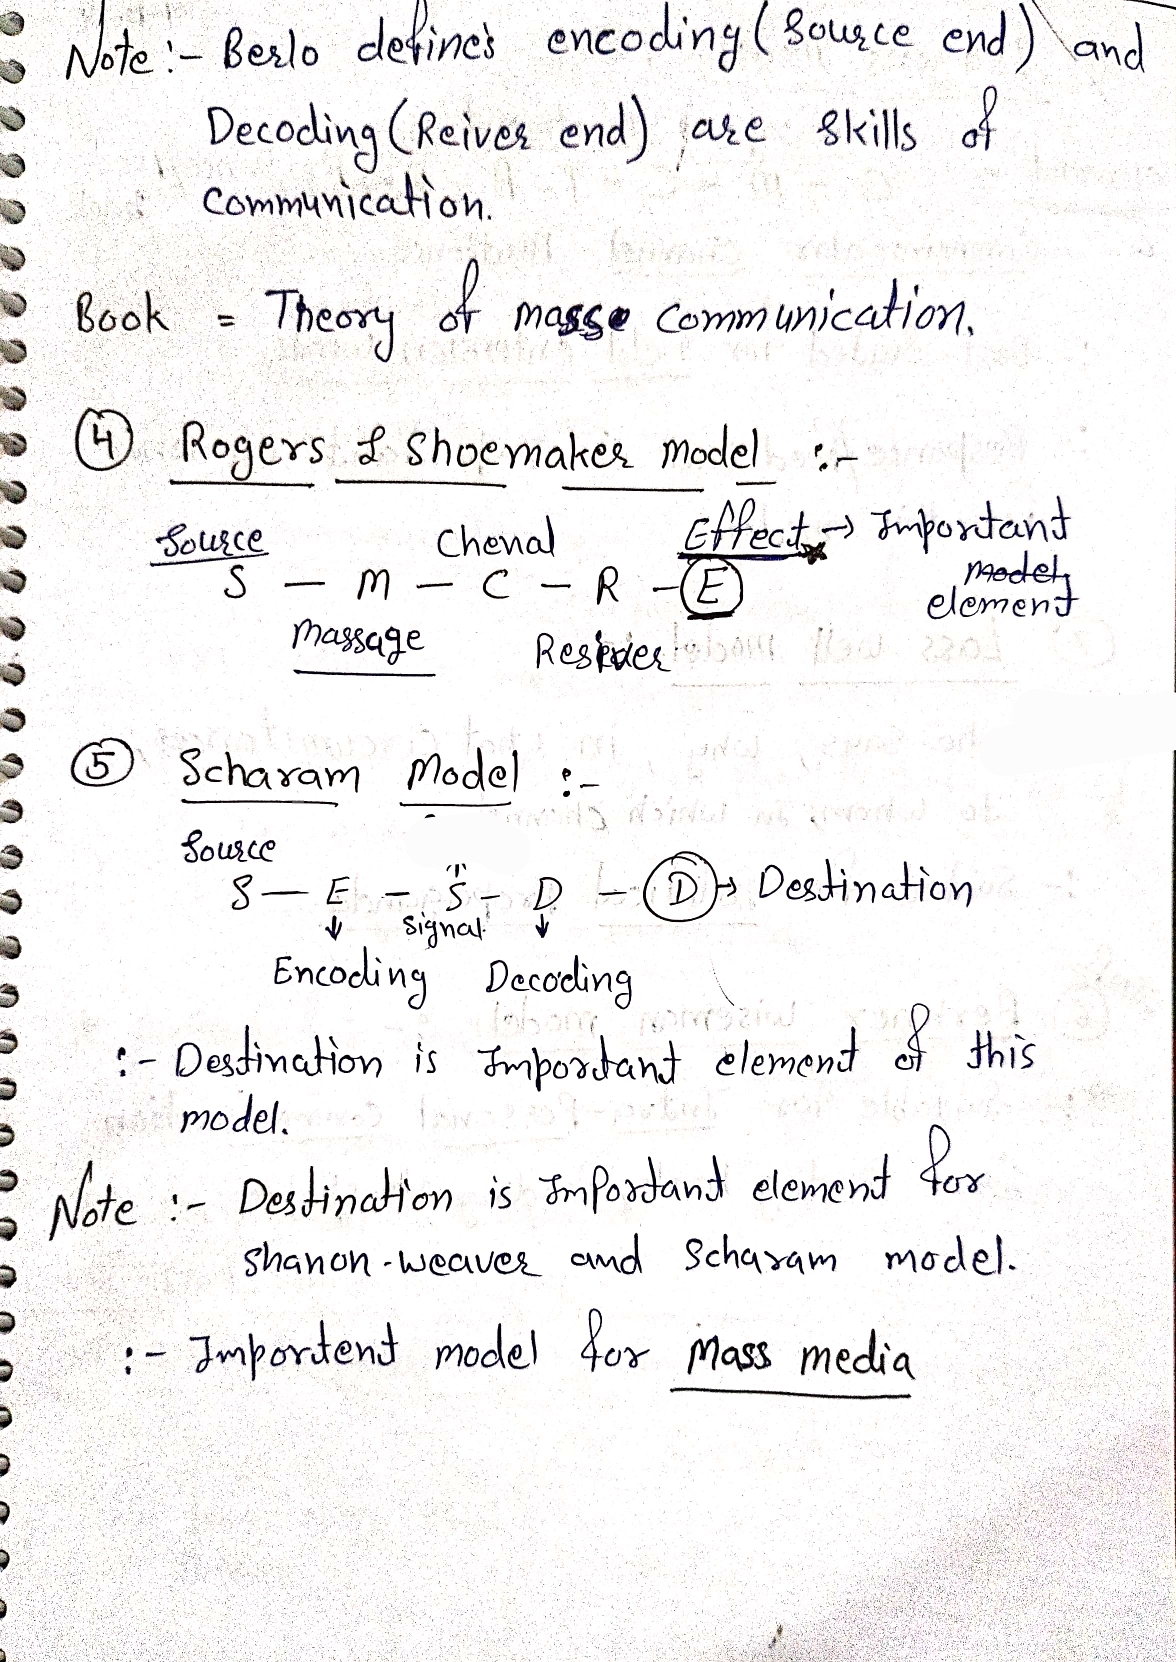 Note :- Berlo defines encoding (Source end) and
Decoding (Reiver end) are skills of
communication.
Book = Theory of mass communication.
④ Rogers & Shoemaker model :-
Source Chenal Effect → Important
model
S - M - C - R - E element
Massage
⑤ Scharam Model :-
Source
S - E - S - D - D → Destination
↓ Signal ↓
Encoding Decoding
:- Destination is Important element of this
model.
Note :- Destination is Important element for
Shanon-weaver and Scharam model.
:- Importent model for Mass media